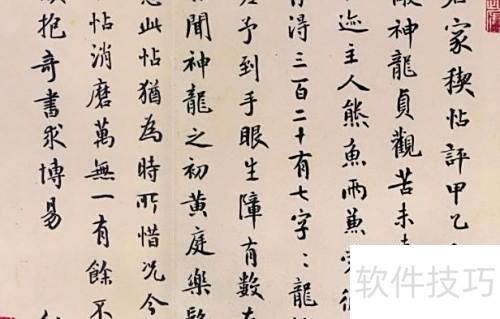 家稧帖評甲乙
神龍貞觀苦未
迹主人熊魚兩兼
得三百二十有七字:龍
予到手眼生障有數
聞神龍之初黄庭樂
此帖猶為時所惜况今
帖消磨萬無一有餘不
抱奇書求博易
软件技巧